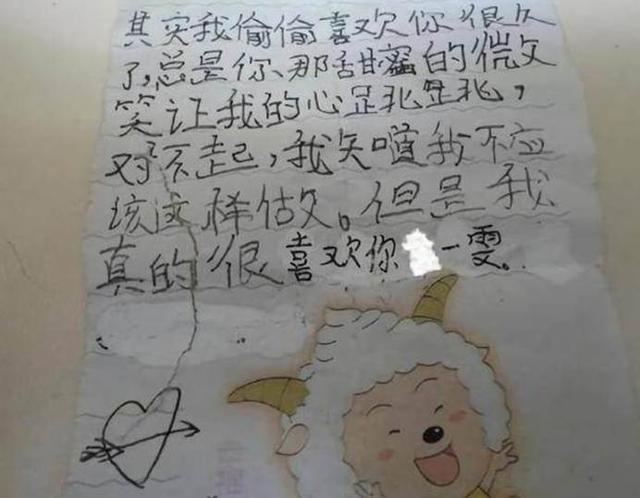 其实我偷偷喜欢你很久
了,总是你那甜蜜的微
笑让我的心跳跳，
对不起，我知道我不应
该这样做。但是我
真的很喜欢你 一雯。